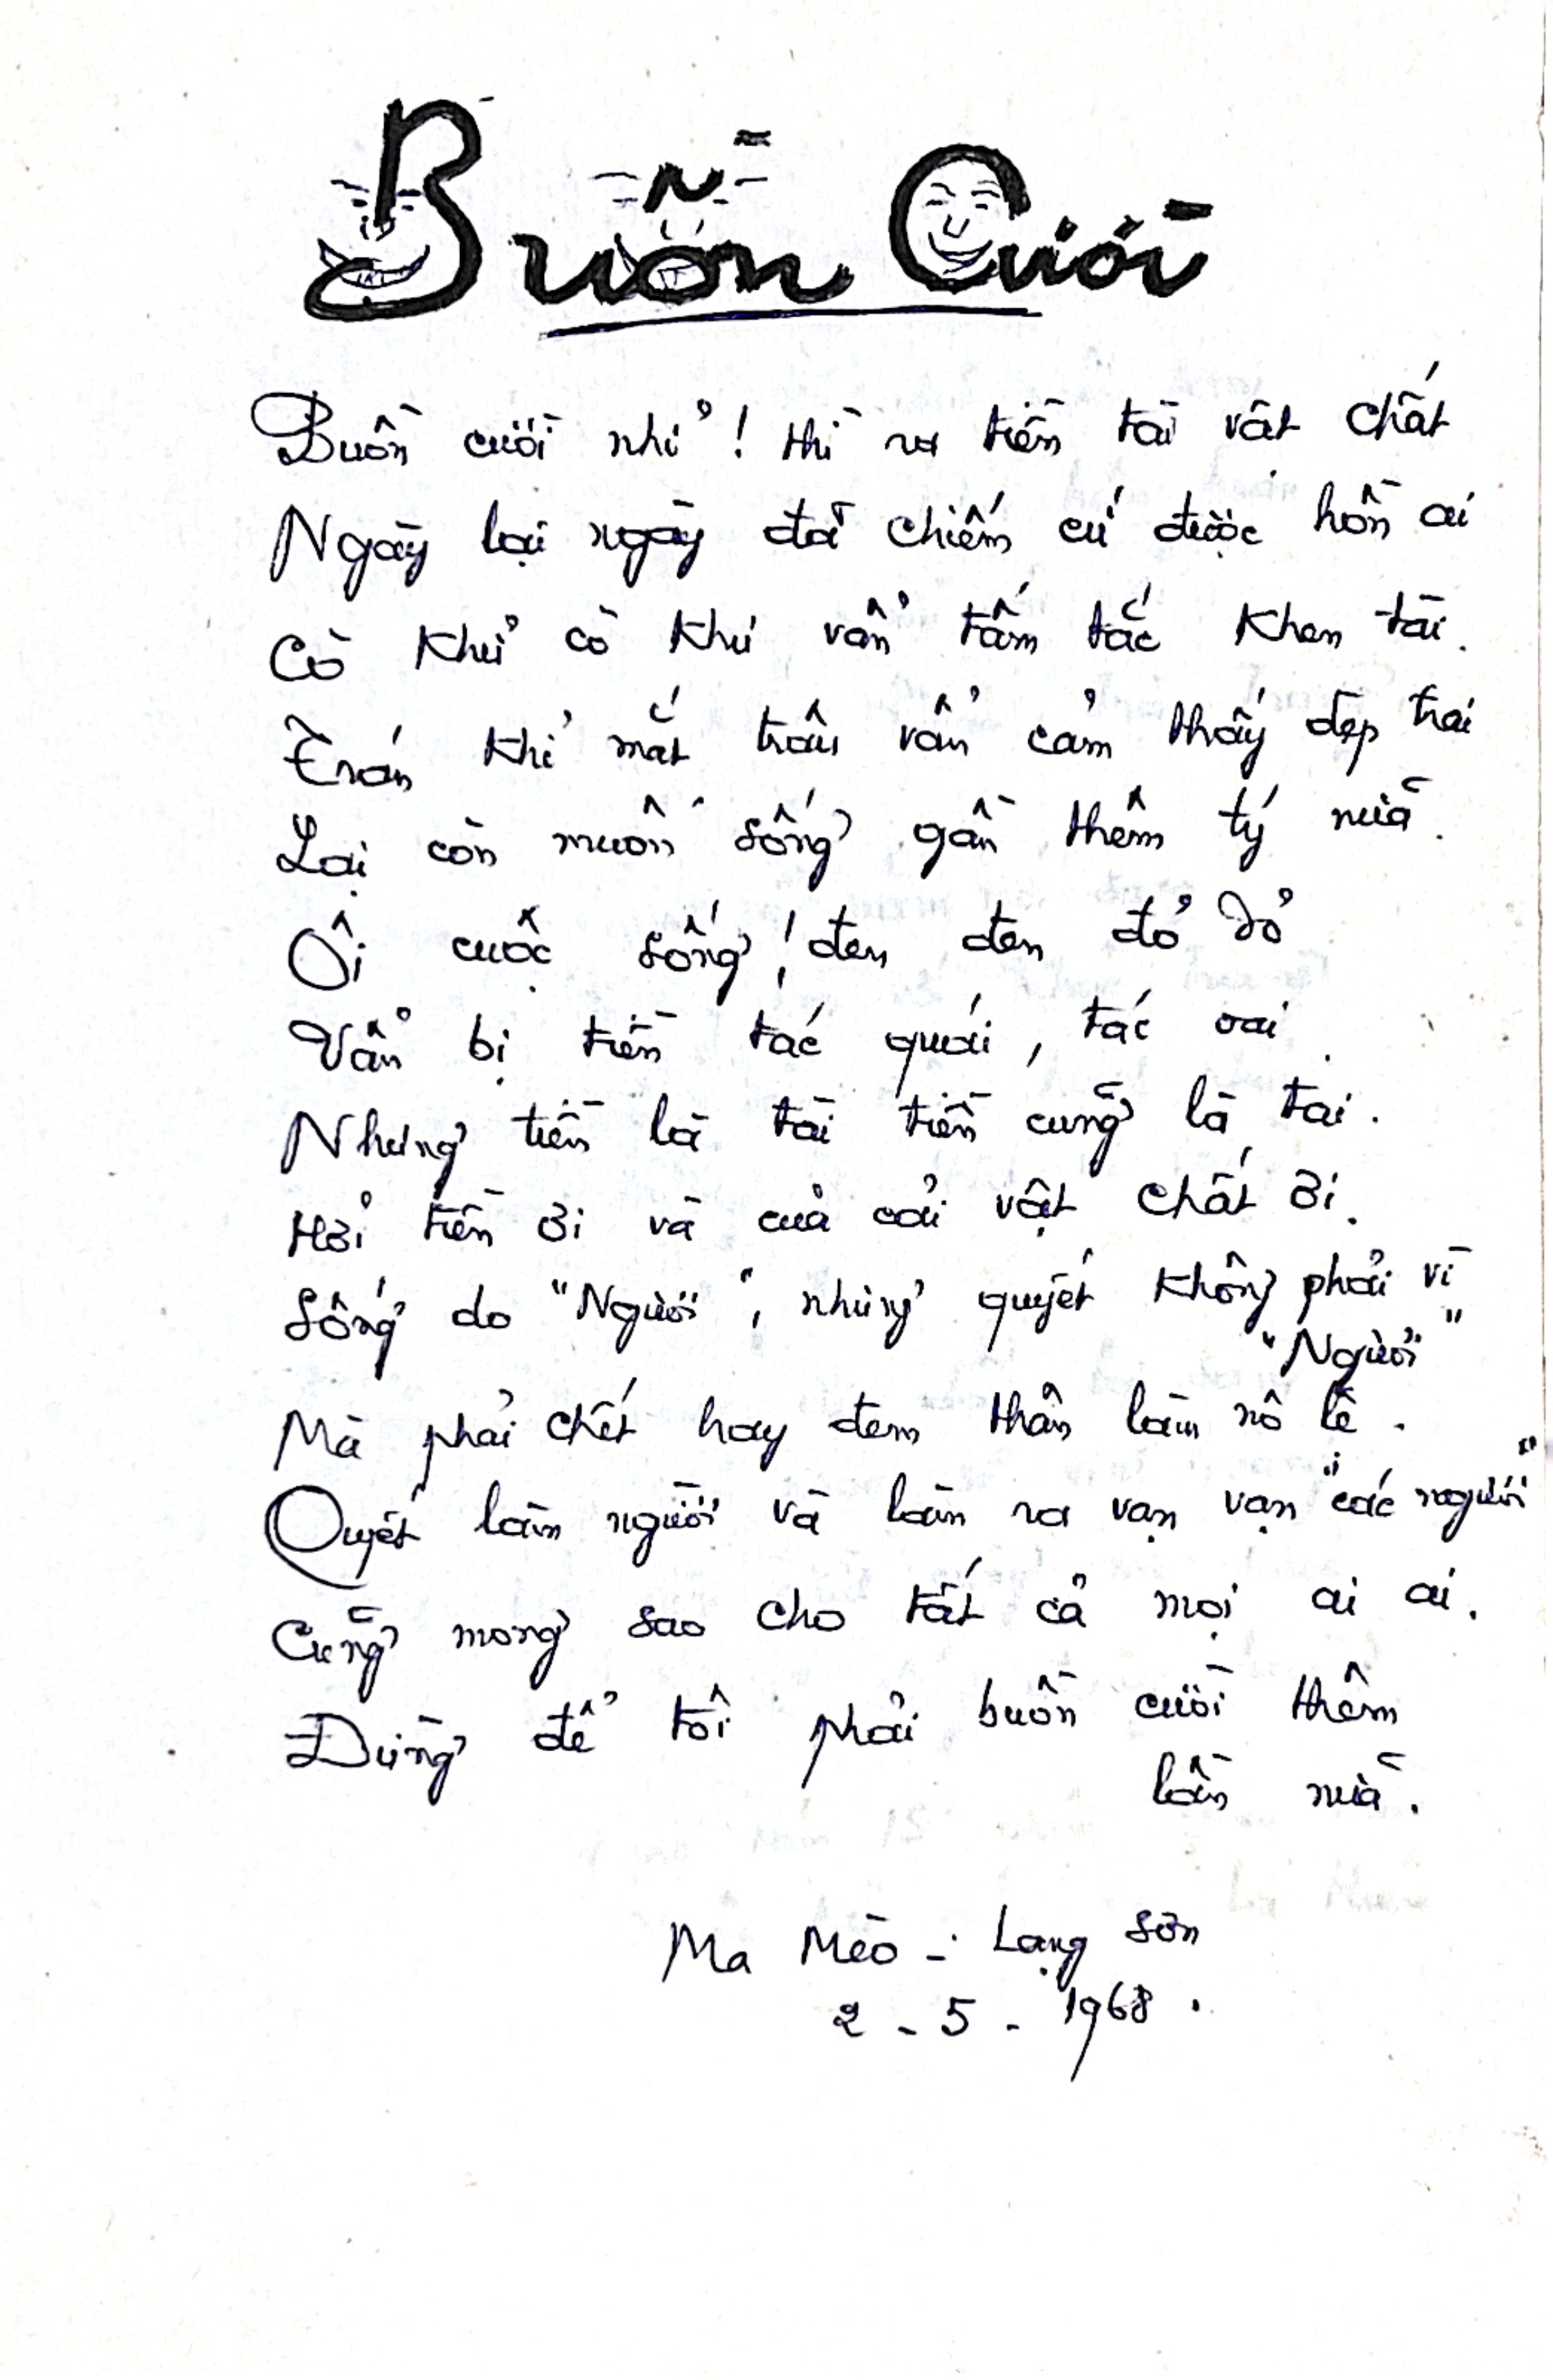 Buồn Cười
Buồn cười nhỉ! thì ra tiền tài vật chất
Ngày lại ngày đã chiếm cứ được hồn ai
Cò khử cò khử vẩn tấm tắc khen tài.
Trán khỉ mắt trâu vẩn cảm thấy đẹp trai
Lại còn muốn sống gần thêm tý nữa.
Ôi cuộc sống! đen đen đỏ đỏ
Vẩn bị tiền tác quái, tác oai.
Nhưng tiền là tài tiền cũng là tai.
Hỡi tiền ơi và của cải vật chất ơi.
Sống do "Người", nhưng quyết không phải vì
"Người"
Mà phải chết hay đem thân làm nô lệ.
Quyết làm người và làm ra vạn vạn "các người"
Cũng mong sao cho tất cả mọi ai ai.
Đừng để tôi phải buồn cười thêm
lần nữa.
Ma Mèo - Lạng Sơn
2 - 5 - 1968.